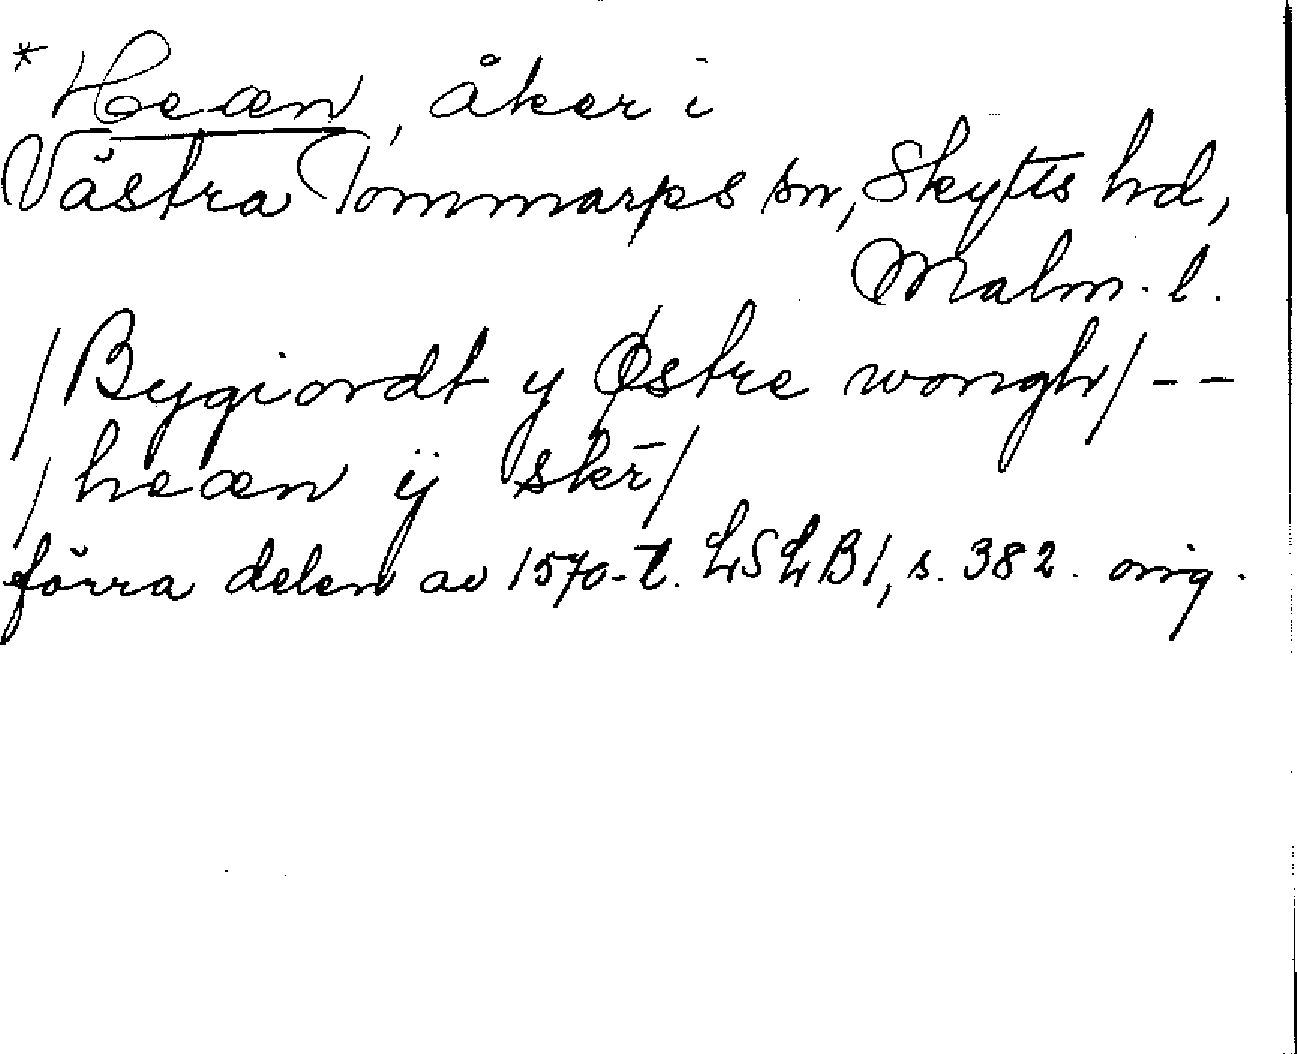 * Heæn, åker i
Västra Tommarps sn, Skytts hd,
Malm. l.
/Bygiordt y Østre wongh/ --
/heæn ÿ skr̄/
förra delen av 1570-t. LSLB1, s. 382. orig.